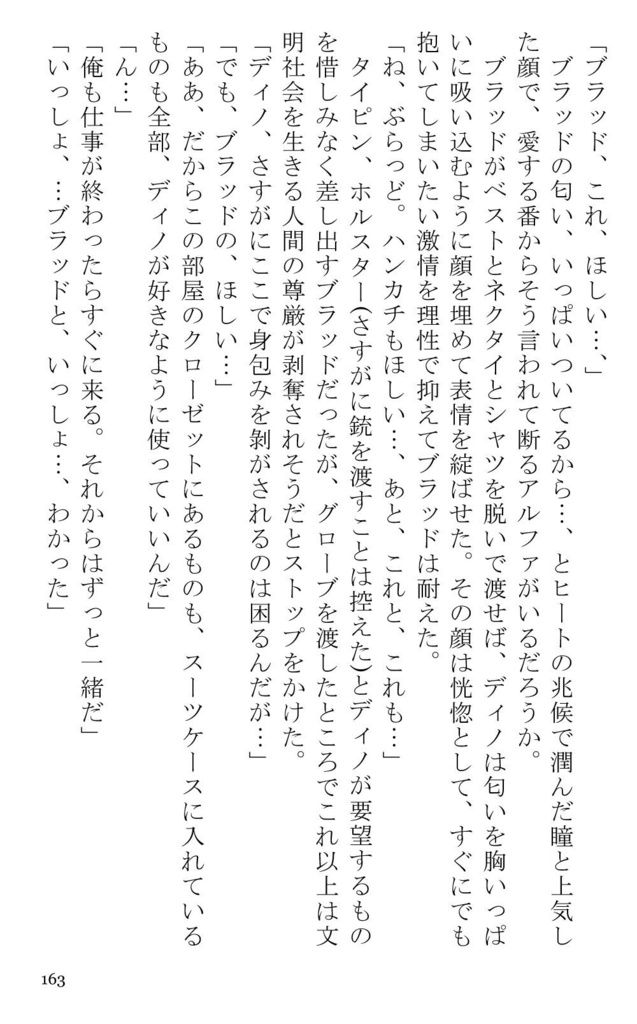 「ブラッド、これ、ほしい…、」
　ブラッドの匂い、いっぱいついてるから…、とヒートの兆候で潤んだ瞳と上気し
た顔で、愛する番からそう言われて断るアルファがいるだろうか。
　ブラッドがベストとネクタイとシャツを脱いで渡せば、ディノは匂いを胸いっぱ
いに吸い込むように顔を埋めて表情を綻ばせた。その顔は恍惚として、すぐにでも
抱いてしまいたい激情を理性で抑えてブラッドは耐えた。
「ね、ぶらっど。ハンカチもほしい…、あと、これと、これも…」
　タイピン、ホルスター(さすがに銃を渡すことは控えた)とディノが要望するもの
を惜しみなく差し出すブラッドだったが、グローブを渡したところでこれ以上は文
明社会を生きる人間の尊厳が剥奪されそうだとストップをかけた。
「ディノ、さすがにここで身包みを剝がされるのは困るんだが…」
「でも、ブラッドの、ほしい…」
「ああ、だからこの部屋のクローゼットにあるものも、スーツケースに入れている
ものも全部、ディノが好きなように使っていいんだ」
「ん…」
「俺も仕事が終わったらすぐに来る。それからはずっと一緒だ」
「いっしょ、…ブラッドと、いっしょ…、わかった」
163